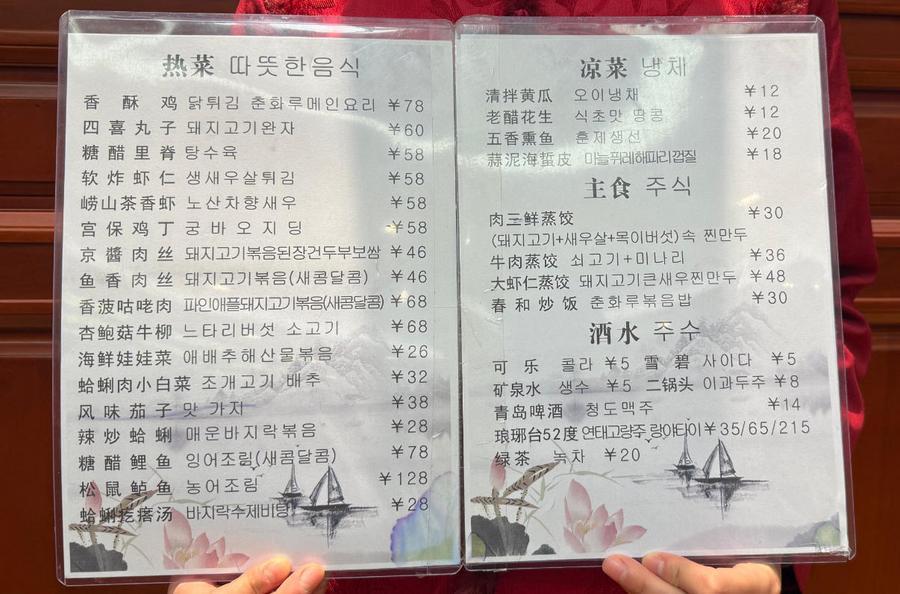 热菜 따뜻한음식
香酥鸡 닭튀김 춘화루메인요리 ¥78
四喜丸子 돼지고기완자 ¥60
糖醋里脊 탕수육 ¥58
软炸虾仁 생새우살튀김 ¥58
崂山茶香虾 노산차향새우 ¥58
宫保鸡丁 궁바오지딩 ¥58
京醬肉丝 돼지고기볶음된장건두부보쌈 ¥46
鱼香肉丝 돼지고기볶음(새콤달콤) ¥46
香菠咕咾肉 파인애플돼지고기볶음(새콤달콤) ¥68
杏鲍菇牛柳 느타리버섯 소고기 ¥68
海鲜娃娃菜 애배추해산물볶음 ¥26
蛤蜊肉小白菜 조개고기 배추 ¥32
风味茄子 맛 가지 ¥38
辣炒蛤蜊 매운바지락볶음 ¥28
糖醋鲤鱼 잉어조림(새콤달콤) ¥78
松鼠鲈鱼 농어조림 ¥128
蛤蜊疙瘩汤 바지락수제비탕 ¥28
凉菜 냉채
清拌黄瓜 오이냉채 ¥12
老醋花生 식초맛 땅콩 ¥12
五香熏鱼 훈제생선 ¥20
蒜泥海蜇皮 마늘퓨레해파리껍질 ¥18
主食 주식
肉三鲜蒸饺 ¥30
(돼지고기+새우살+목이버섯)속 찐만두
牛肉蒸饺 쇠고기+미나리 ¥36
大虾仁蒸饺 돼지고기큰새우찐만두 ¥48
春和炒饭 춘화루볶음밥 ¥30
酒水 주수
可乐 콜라 ¥5 雪碧 사이다 ¥5
矿泉水 생수 ¥5 二锅头 이과두주 ¥8
青岛啤酒 청도맥주 ¥14
琅琊台52度 연태고량주 랑야타이 ¥35/65/215
绿茶 녹차 ¥20